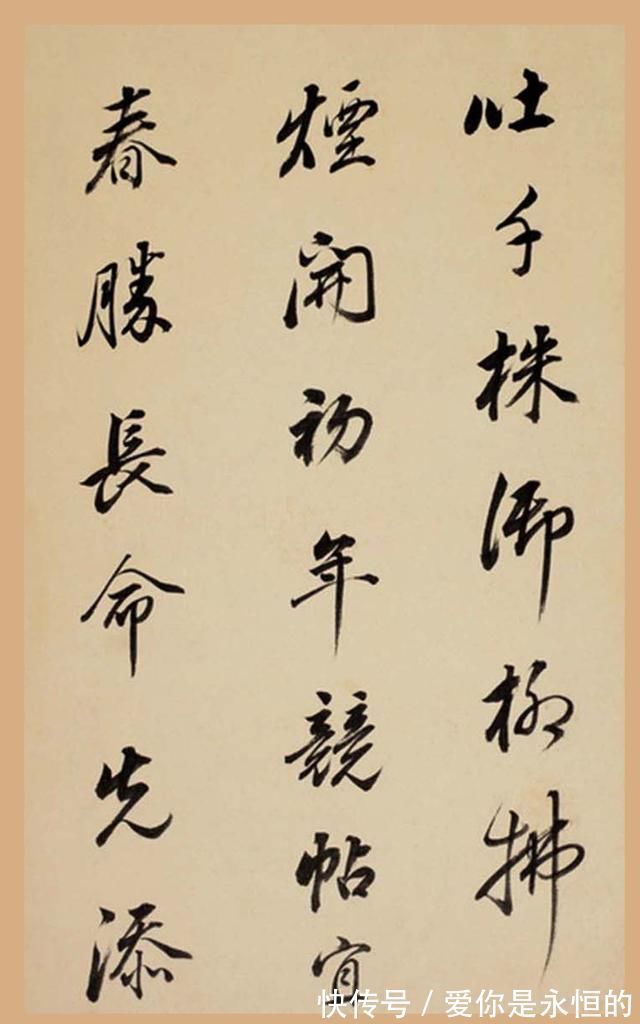 吐千株御柳拂
煙開初年競帖宜
春勝長命先添
快传号 / 爱你是永恒的